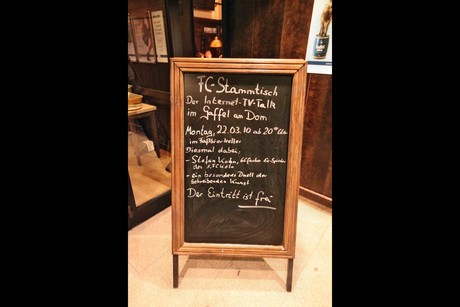 FC-Stammtisch
Der Internet-TV-Talk
im Gaffel am Dom:
Montag, 22.03.10 ab 20⁰⁰ Uhr
im Faßbierkeller
Diesmal dabei:
- Stefan Kohn, Ex-Spieler
des 1. FC Köln
- ein besonderes Duell der
schreibenden Kunst
Der Eintritt ist frei